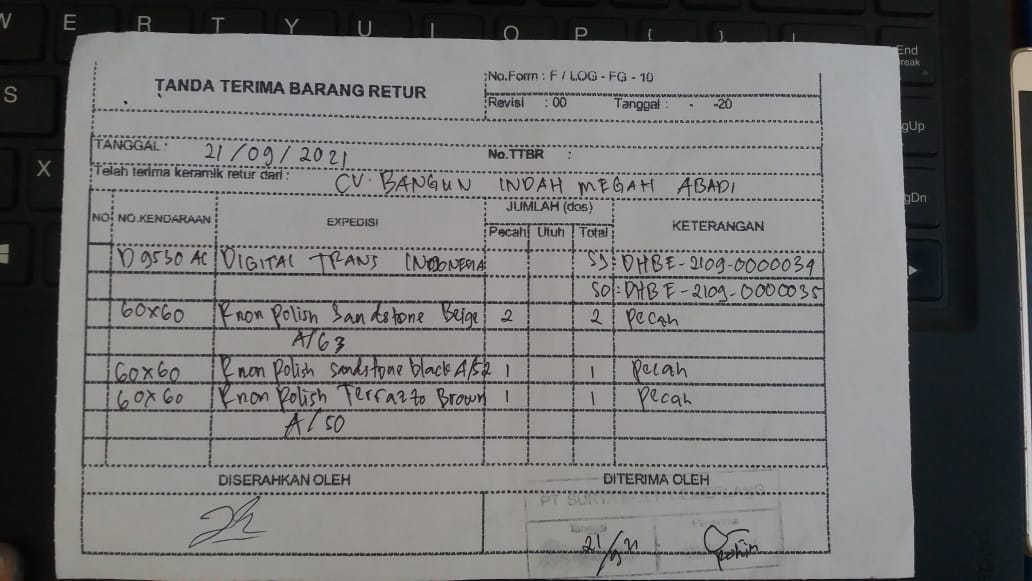 W E R T Y U I O P { }
End
break
S
gUp
X
gDn
TANDA TERIMA BARANG RETUR
No.Form : F / LOG - FG - 10
Revisi : 00 Tanggal : - -20
TANGGAL : 21/09/2021 No.TTBR :
Telah terima keramik retur dari : CV. BANGUN INDAH MEGAH ABADI
NO NO.KENDARAAN EXPEDISI JUMLAH (dos) KETERANGAN
Pecah Utuh Total
D 9530 AC DIGITAL TRANS INDONESIA SJ: DHBE-2109-0000039
SO:DHBE-2109-0000035
60x60 R non polish Sandstone Beige 2 2 pecah
A/63
60x60 R non polish sandstone black A/52 1 1 pecah
60x60 R non polish Terrazzo Brown 1 1 pecah
A/50
DISERAHKAN OLEH DITERIMA OLEH
PT SURYA MULTI CEMERLANG
Tanggal
21/9 21